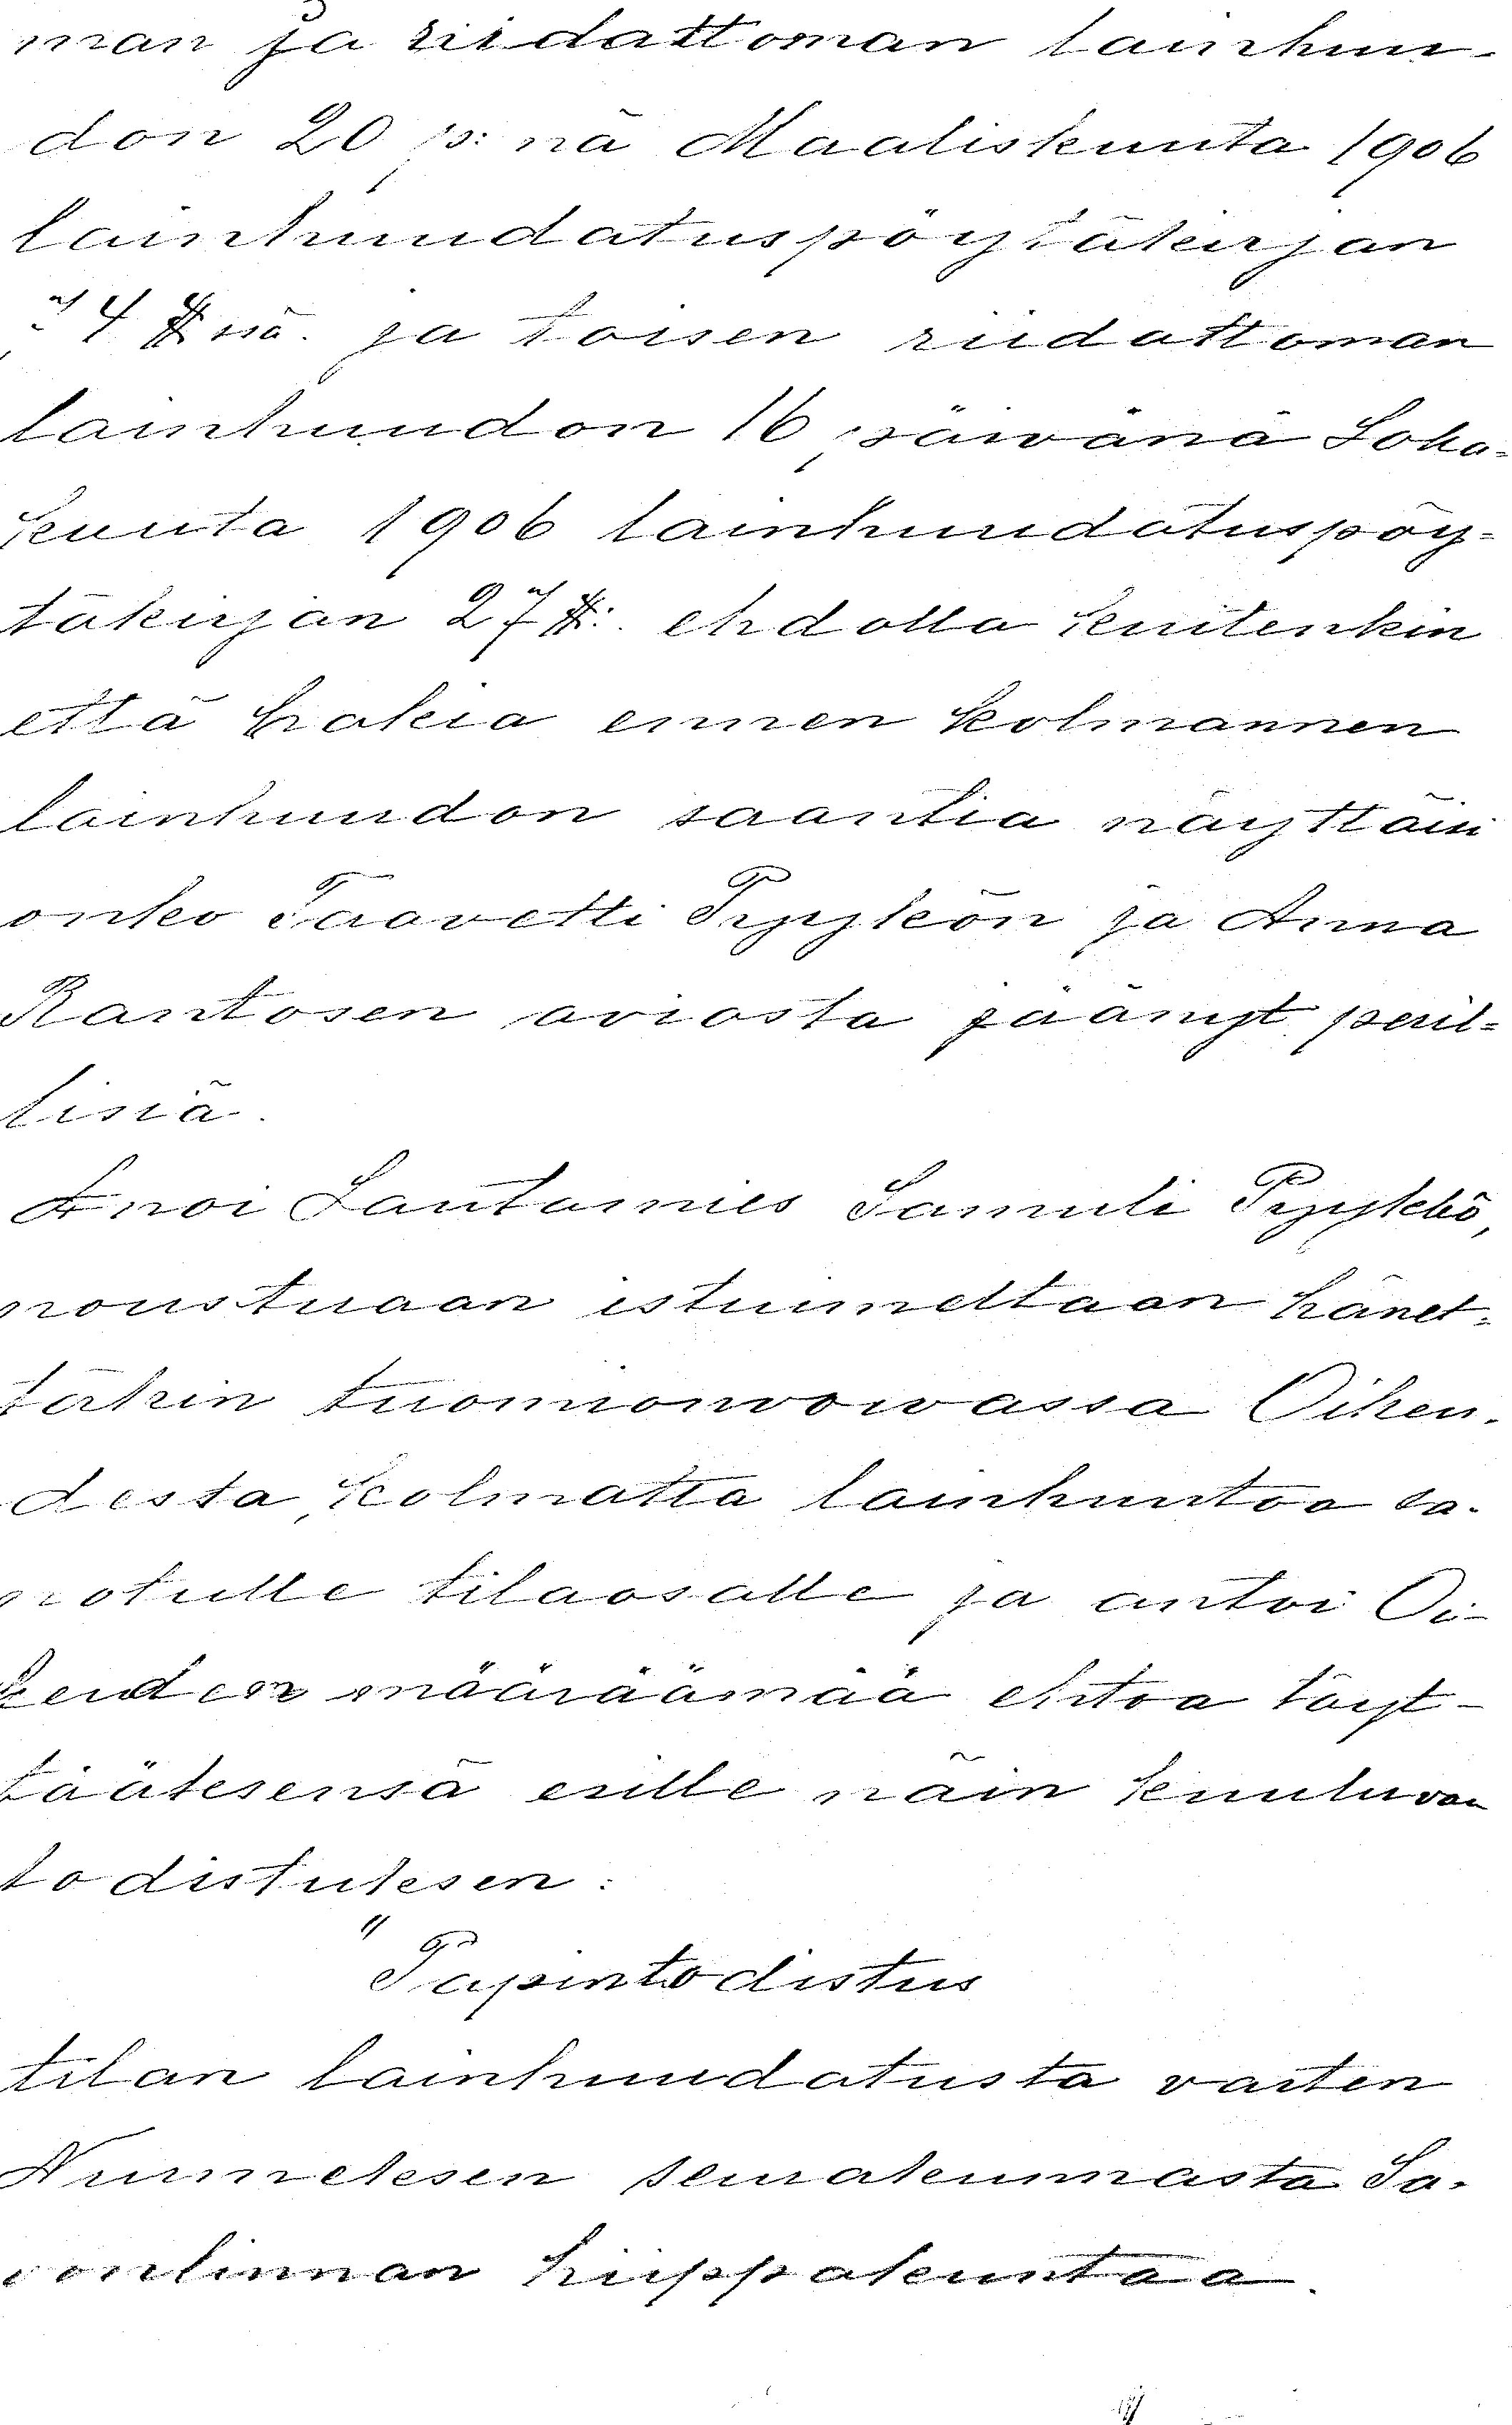 man ja riidattoman lainhuu-
don 20 p:nä Maaliskuuta 1906
lainhuudatuspöytäkirjan
4 §:nä. ja toisen riidattoman
lainhuudon 16 päivänä Loka-
kuuta 1906 lainhuudatuspöy-
täkirjan 27 §: ehdolla kuitenkin
että hakia ennen kolmannen
lainhuudon saantia näyttäisi
onko Taavetti Pyykön ja Anna
Rantosen aviosta jäänyt peril-
lisiä.
Anoi Lautamies Samuli Pyykkö,
noustuaan istuimeltaan hänet-
täkin tuomionvoivassa Oikeu-
desta, kolmatta lainhuutoa sa-
notulle tilaosalle ja antoi Oi-
keuden määräämää ehtoa täyt-
tääksensä esille näin kuuluvan
todistuksen:
"Papintodistus
tilan lainhuudatusta varten
Nurmeksen seurakunnasta Sa-
vonlinnan hiippakuntaa.